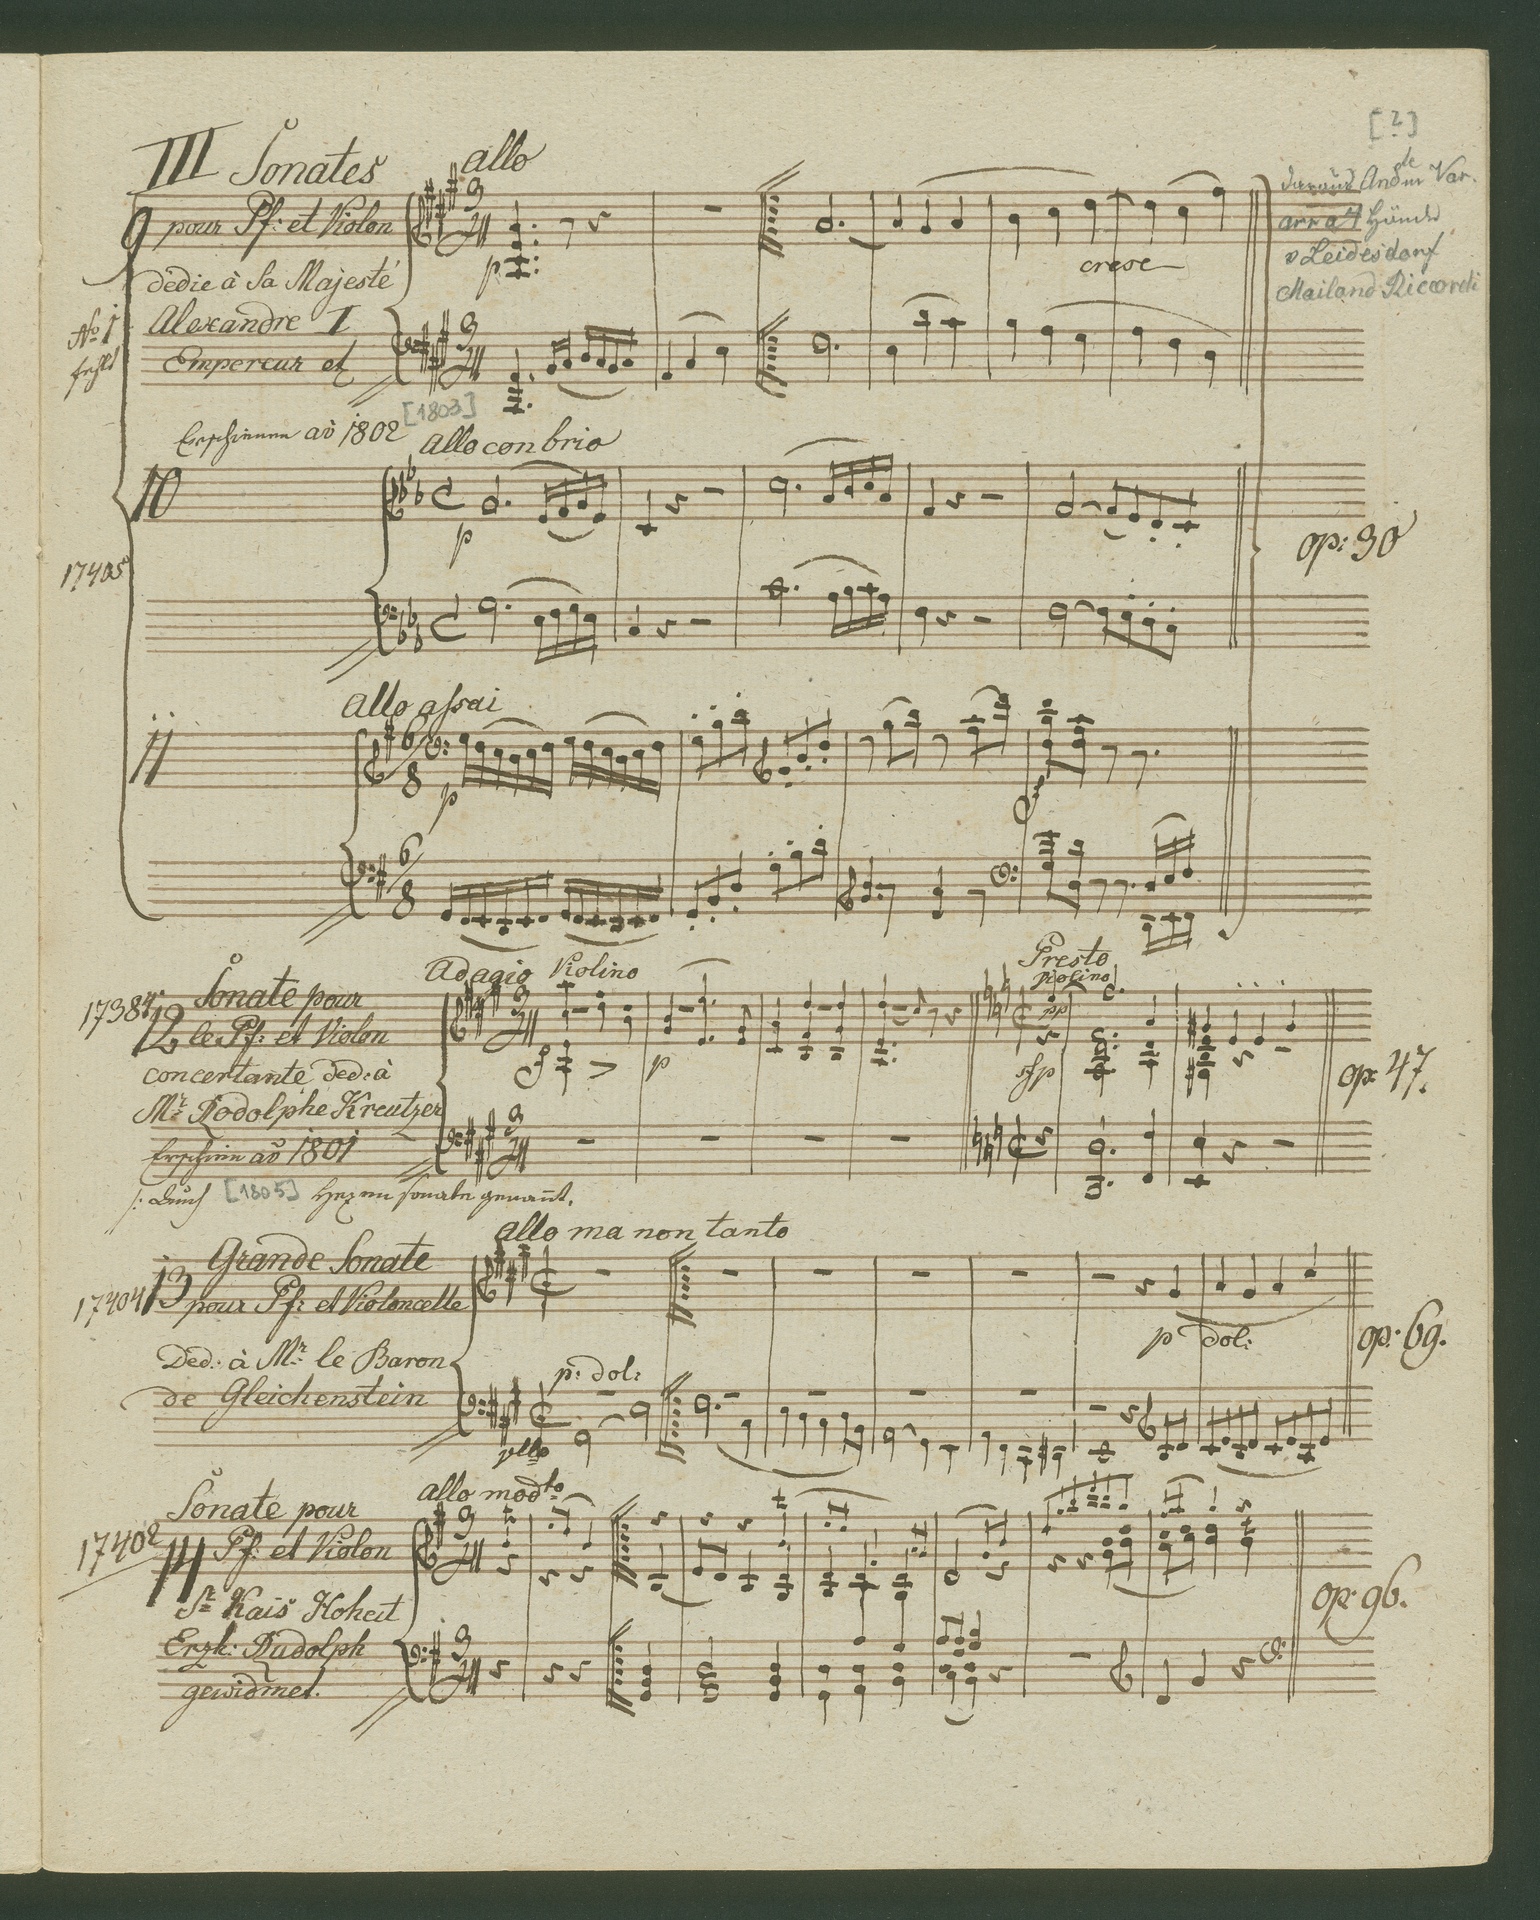 [2]
III Sonates
allo
9 pour Pf: et Violon
dedie à Sa Majesté
Alexandre I
Empereur et
No 1
fehlt
p
cresc
daraus Andte m Var.
arr a 4 Hände
v Leidesdorf
Mailand Riccordi
Erschienen ao 1802 [1803]
allo con brio
10
p
17405
op: 30
allo assai
11
p
Adagio Violino
Presto
Violino
17384
12 Sonate pour
le Pf: et Violon
concertante ded: à
Mr Rodolphe Kreutzer
Erschien ao 1801
/: Auch [1805] Hexen sonate genannt.
f
p
pp
sfp
op: 47.
allo ma non tanto
17404
13 Grande Sonate
pour Pf: et Violoncelle
Ded: à Mr le Baron
de Gleichenstein
p: dol:
vllo
p dol:
op: 69.
allo modto
17402
14 Sonate pour
Pf: et Violon
Sr Kais Hoheit
Erzh: Rudolph
gewidmet.
op: 96.